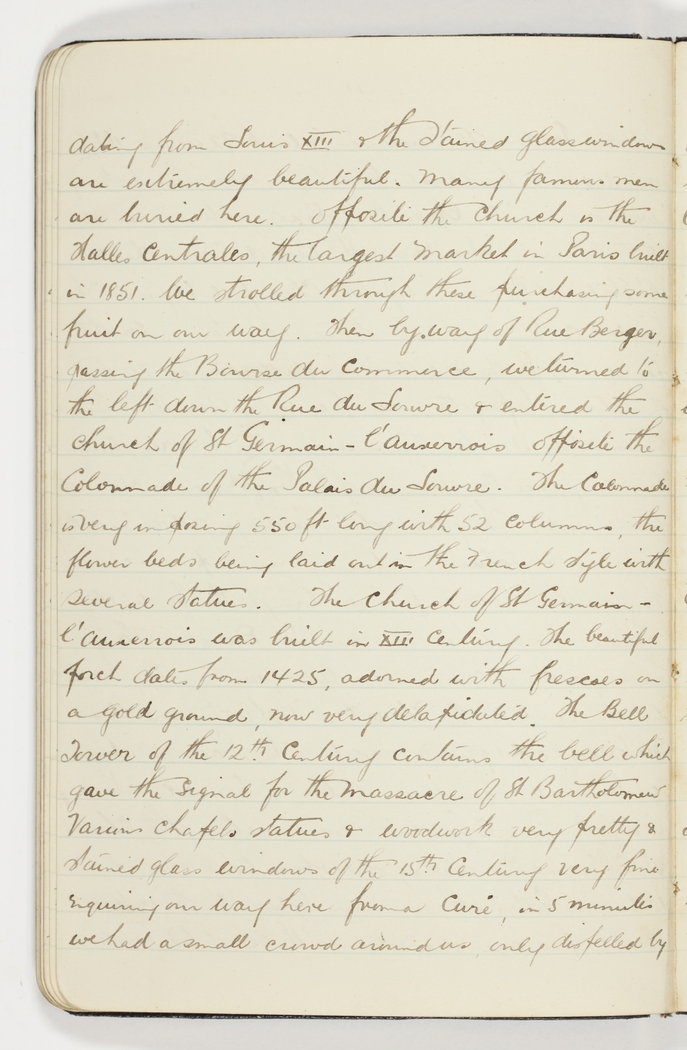 dating from Louis XIII & the stained glass windows
are extremely beautiful. Many famous men
are buried here. Opposite the Church is the
Halles Centrales, the largest market in Paris built
in 1851. We strolled through these purchasing some
fruit on our way. Then by way of Rue Berger,
passing the Bourse du Commerce, we turned to
the left down the Rue du Louvre & entered the
Church of St Germain - l'auxerrois opposite the
Colonnade of the Palais du Louvre. The Colonnade
is very imposing 550 ft long with 52 columns, the
flower beds being laid out in the French style with
several statues. The Church of St Germain -
l'auxerrois was built in XII Century. The beautiful
porch dates from 1425, adorned with frescoes on
a gold ground, now very delapidated. The Bell
Tower of the 12th Century contains the bell which
gave the signal for the Massacre of St Bartholomew
Various chapels statues & woodwork very pretty &
stained glass windows of the 15th Century very fine
Enquiring our way here from a Curé, in 5 minutes
we had a small crowd around us, only dispelled by